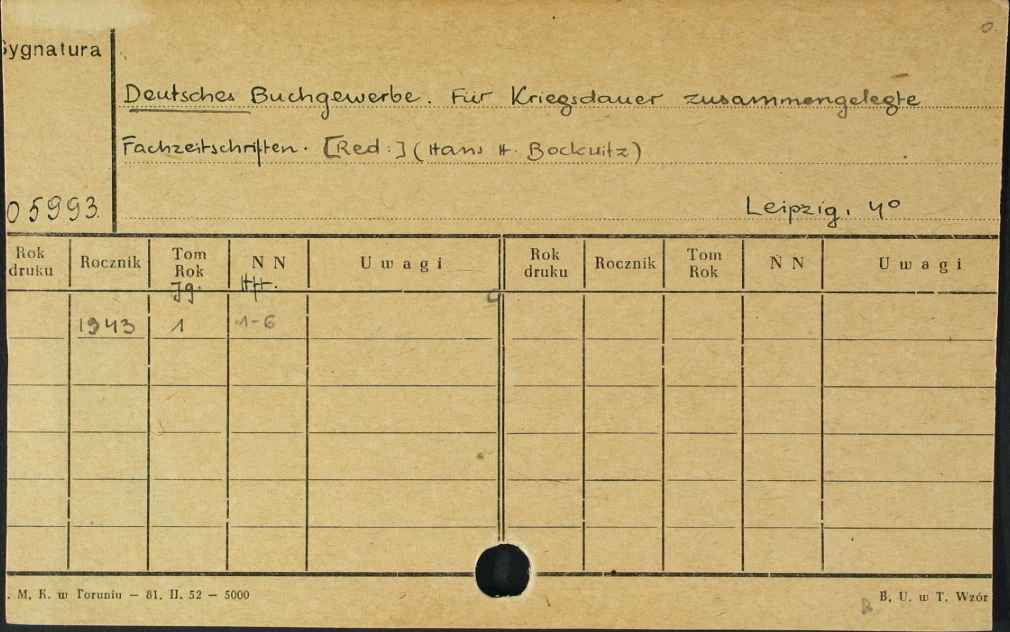 Sygnatura
Deutsches Buchgewerbe. Für Kriegsdauer zusammengelegte
Fachzeitschriften. [Red:] (Hans H. Bockwitz)
05993
Leipzig, 4º
Rok druku Rocznik Tom Rok N N Uwagi Rok druku Rocznik Tom Rok N N Uwagi
Jg. HH.
1943 1 1-6
. M. K. w Toruniu — 81. II. 52 — 5000
B. U. w T. Wzór